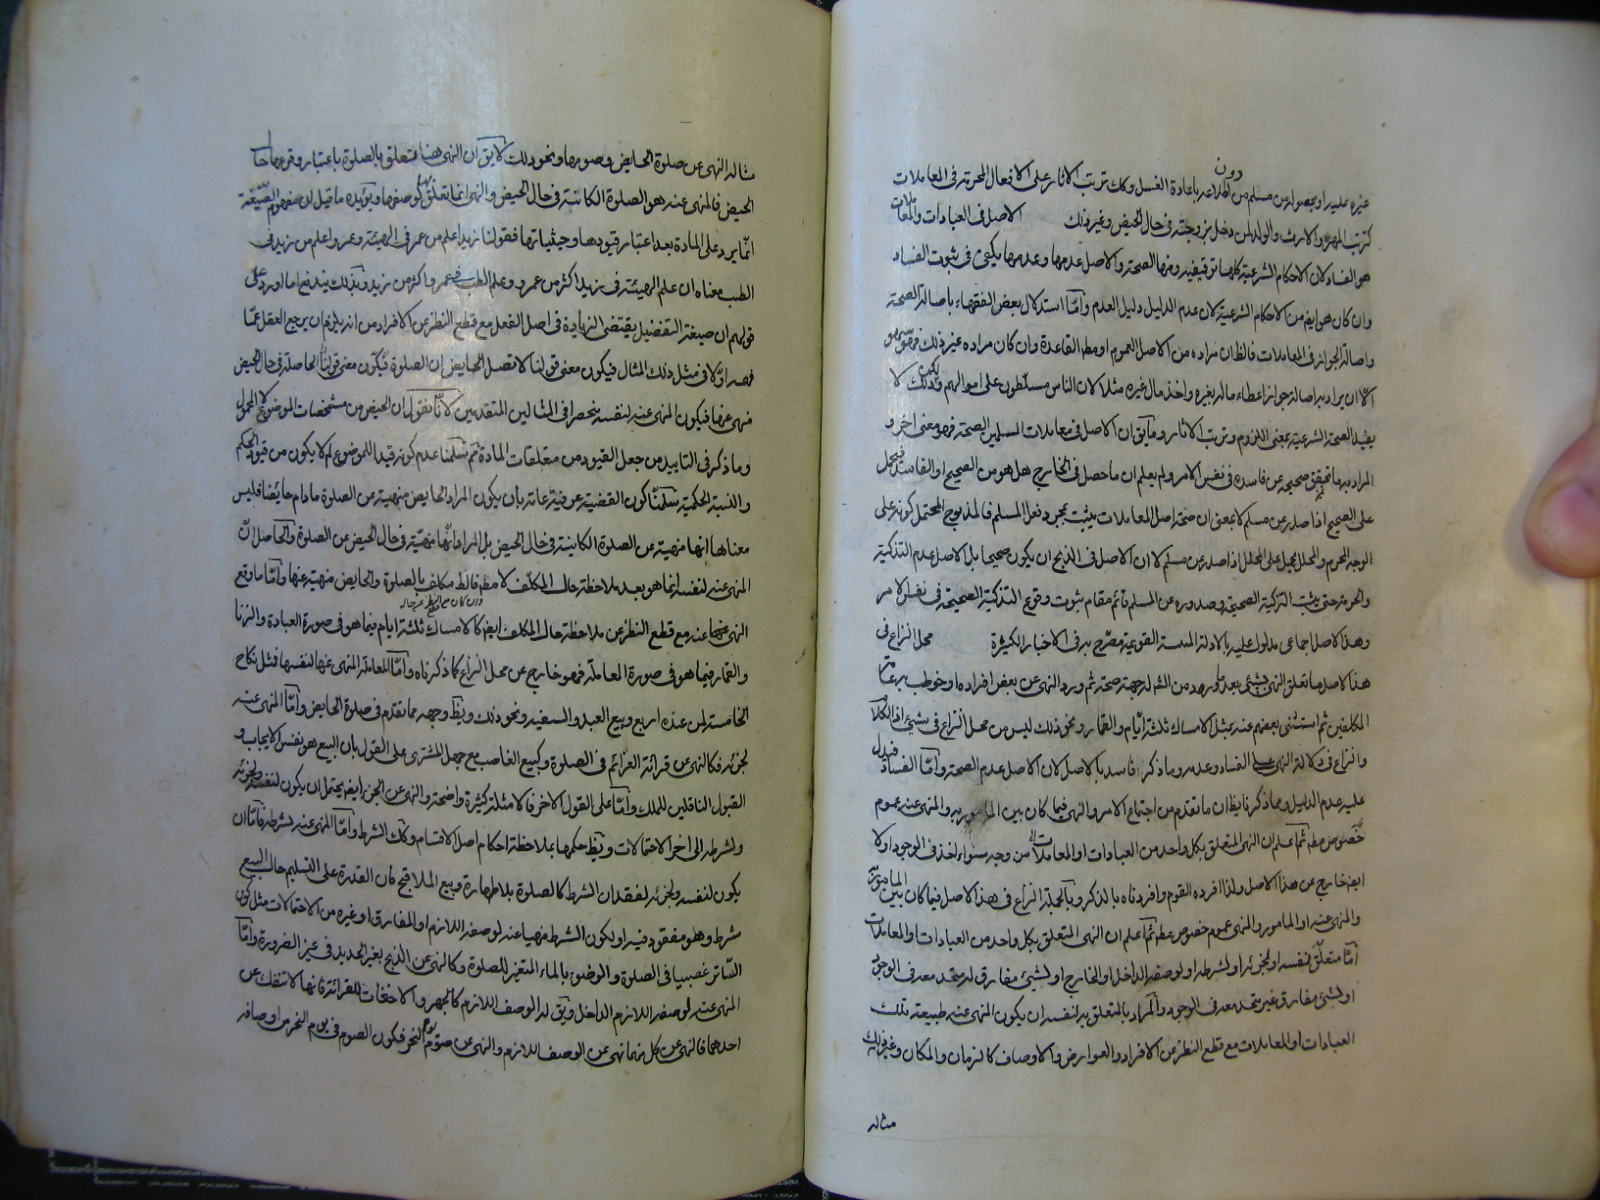 دون
غيره عليه او بحصوله من مسلم من اطلاعه باعادة الغسل وكك ترتب الاثار على الافعال المحرمة فى المعاملات
كترتب المهر والارث والولد لمن دخل بزوجته فى حال الحيض وغير ذلك الاصل فى العبادات والمعاملات
هو الفساد لان الاحكام الشرعية كلها توقيفية ومنها الصحة والاصل عدمها وعدمها يكفى فى ثبوت الفساد
وان كان هو ايضا من الاحكام الشرعية لان عدم الدليل دليل العدم وامّا استدلال بعض الفقهاء باصالة الصحة
واصالة الجواز فى المعاملات فالظ ان مراده من الاصل العموم او مط القاعدة وان كان مراده غير ذلك فهو سهو
الا ان يراد به اصالة جواز اعطاء ماله بغيره واخذ مال غيره مثلا لان الناس مسلّطون على اموالهم ولكن ذلك لا
يفيد الصحة الشرعية بمعنى اللزوم وترتب الاثار وما يق ان الاصل فى معاملات المسلمين الصحة فهو معنى اخر و
المراد به ما تحقق صحيحه عن فاسده فى نفس الامر ولم يعلم ان ما حصل فى الخارج هل هو من الصحيح او الفاسد فيحمل
على الصحيح اذا صدر عن مسلم لا بمعنى ان صحة اصل المعاملات يثبت بمجرد فعل المسلم فالمذبوح المحتمل كونه على
الوجه المحرم والمحلل يحمل على المحلل اذا صدر عن مسلم لا ان الاصل فى الذبح ان يكون صحيحا بل الاصل عدم التذكية
والحرمة حتى يثبت التزكية الصحيحة وصدوره عن المسلم قائم مقام ثبوت وقوع التذكية الصحيحة فى نفس الامر
وهذا الاصل اجماعى مدلول عليه بالادلة المتينة القوية مصرح به فى الاخبار الكثيرة محل النزاع فى
هذا الاصل ما تعلق النهى بشئ بعد ما ورد من الش له جهة صحة ثم ورد النهى عن بعض افراده او خوطب به عامة
المكلفين ثم استثنى بعضهم عنه فمثل الامساك ثلثة ايّام والقمار ونحو ذلك ليس من محل النزاع فى شئ اذ الكلام
والنزاع فى دلالة النهى على الفساد وعدمه وما ذكر فاسد بالاصل لان الاصل عدم الصحة وامّا الفساد فيدل
عليه عدم الدليل ومما ذكر فا يظ ان ما تقدم من اجتماع الامر والنهى فيما كان بين المامور به والمنهى عنه عموم
خصوص مط ثم اعلم ان النهى المتعلق بكل واحد من العبادات او المعاملات من وجه سواء اتحد فى الوجود او لا
ايضا خارج عن هذا الاصل ولذا افرده القوم وافردناه بالذكر وبالجملة النزاع فى هذا الاصل فيما كان بين المامور به
والمنهى عنه او المامور والمنهى عموم خصوص مط ثم اعلم ان النهى المتعلق بكل واحد من العبادات او المعاملات
امّا متعلّق بنفسه او بجزئه او بشرطه او لوصفه الداخل او الخارج او لشئ مفارق له متحد معه فى الوجود
او لشئ مفارق غير متحد معه فى الوجود والمراد بالمتعلق به لنفسه ان يكون المنهى عنه طبيعة تلك
العبادات او المعاملات مع قطع النظر عن الافراد والعوارض والاوصاف كالزمان والمكان وغير ذلك
مثاله
مثاله النهى عن صلوة الحايض وصومها ونحو ذلك لا يق ان النهى هنا متعلق بالصلوة باعتبار وقوعها حال
الحيض فالمنهى عنه هو الصلوة الكائنة فى حال الحيض والنهى انما تعلّق بها لوصفها ويؤيده ما قيل ان مفهوم الصّيغة
انّما يرد على المادة بعد اعتبار قيودها وحيثياتها فقولنا زيد اعلم من عمرو فى الهيئة وعمرو اعلم من زيد فى
الطب معناه ان علم الهيئة فى زيد اكثر من عمرو وعلم الطب فى عمرو اكثر من زيد وبذلك يندفع ما اورد على
قولهم ان صيغة التفضيل يقتضى الزيادة فى اصل الفعل مع قطع النظر عن الافراد من انه يلزم ان يرجع العقل عمّا
قصد اوّلا فى مثل ذلك المثال فيكون معنى قولنا لا تصل الحايض ان الصلوة فيكون معنى قولنا الحاصلة فى حال الحيض
منهى عنها فيكون المنهى عنه لنفسه منحصرا فى المثالين المتقدمين لانّا نقول ان الحيض من مشخصات الموضوع لا المحمول
وما ذكر فى التاييد من جعل القيود من متعلقات المادة ثم سلمنا عدم كونه قيدا للموضوع لم لا يكون من قيود الحكم
والنسبة الحكمية سلمنا كون القضية عرفية عامة بان يكون المراد الحايض منهية عن الصلوة ما دام حائضا فليس
معناها انها منهية عن الصلوة الكائنة فى حال الحيض بل المراد انّها منهيّة فى حال الحيض عن الصلوة والحاصل انّ
المنهى عنه لنفسه انما هو بعد ملاحظة حال المكلّف لا مط فالط مكلف بالصلوة والحايض منهية عنها وامّا ما وقع
وان كان مع النظر عن حاله
النهى عنه مع قطع النظر عن ملاحظة حال المكلف ايضا كالامساك ثلثة ايام فيما هو فى صورة العبادة والزنا
والقمار فيما هو فى صورة المعاملة فهو خارج عن محل النزاع كما ذكرناه وامّا المعاملة المنهى عنها لنفسها فمثل نكاح
الخامسة لمن عنده اربع وبيع العبد والسفيه ونحو ذلك ويظ وجهه مما تقدم فى صلوة الحايض وامّا المنهى عنه
لجزئه فكالنهى عن قرائة العزائم فى الصلوة وكبيع الغاصب مع جهل المشترى على القول بان البيع هو نفس الايجاب و
القبول الناقلين للملك وامّا على القول الاخر فالامثلة كثيرة واضحة والنهى عن الجزء ايضا يحتمل ان يكون لنفسه ولجزئه
ولشرطه الى اخر الاحتمالات ويظ حكمها بملاحظة احكام اصل الاقسام وكك الشرط وامّا المنهى عنه لشرطه فامّا ان
يكون لنفسه ولجزئه لفقدان الشرط كالصلوة بلا طهارة وبيع الملاقيح فان القدرة على التسليم حال البيع
شرط وهو مفقود فيه او لكون الشرط منهيا عنه لوصفه اللازم او المفارق او غيره من الاحتمالات مثل كون
السّاتر غصبيا فى الصلوة والوضوء بالماء المتغير للصلوة وكالنهى عن الذبح بغير الحديد فى غير الضرورة وامّا
المنهى عنه لوصفه اللازم الداخل ويق له الوصف اللازم كالجهر والاخفات للقرائة فانها لا تنفك عن
احدهما فالنهى عن كل منهما نهى عن الوصف اللازم والنهى عن صوم يوم النحر فكون الصوم فى يوم النحر من اوصافه